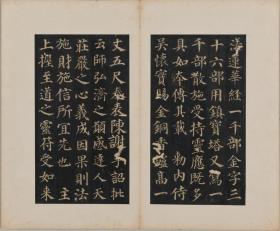 法蓮華經一千部金字三
十六部用鎮寶塔又寫一
千部散施受持靈應既多
具如本傳其載敕內侍
吳懷實賜金銅香爐高一
丈五尺奉表陳謝手詔批
云師弘濟之願感達人天
莊嚴之心義成因果則法
施財施信所宜先也主
上握至道之靈符受如來